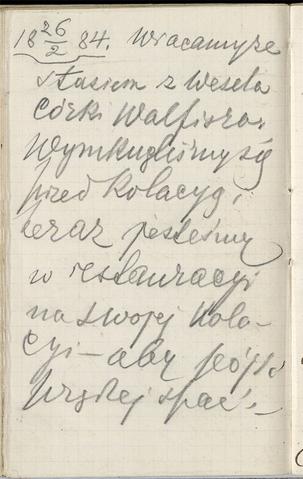 18 26/2 84. Wracamy ze
Stasiem z Wesela
Córki Walfisza.
Wymknęliśmy się
przed Kolacyą,
teraz jesteśmy
w restauracyi
na swojej Kola-
cyi – aby pójść
wcześniej spać. –